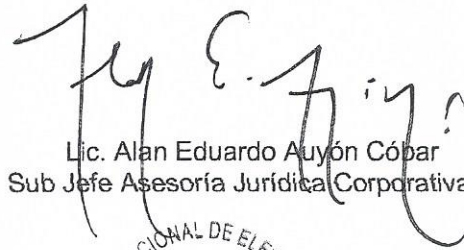 Lic. Alan Eduardo Auyón Cóbar
Sub Jefe Asesoría Jurídica Corporativa
CIONAL DE ELE